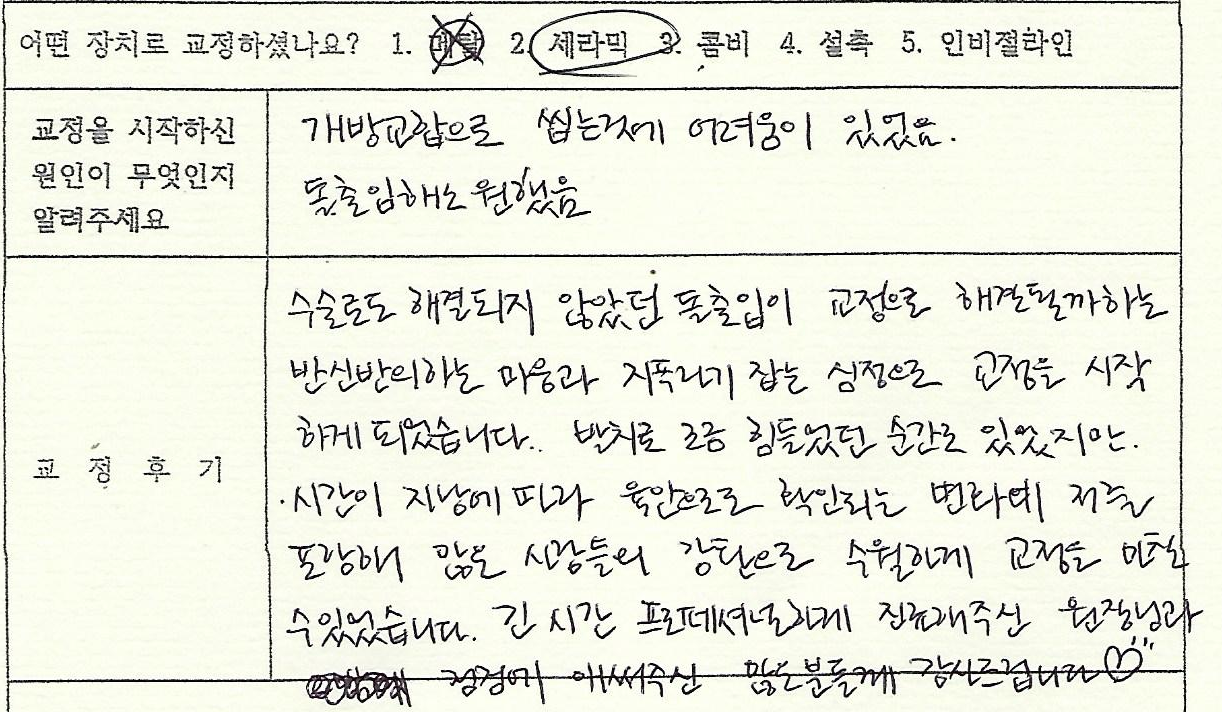 어떤 장치로 교정하셨나요? 1. 메탈 2. 세라믹 3. 콤비 4. 설측 5. 인비절라인
교정을 시작하신
원인이 무엇인지
알려주세요
개방교합으로 씹는것에 어려움이 있었음.
돌출입해소 원했음
교 정 후 기
수술로도 해결되지 않았던 돌출입이 교정으로 해결될까하는
반신반의하는 마음과 지푸라기 잡는 심정으로 교정을 시작
하게 되었습니다. 발치로 조금 힘들었던 순간도 있었지만.
시간이 지남에 따라 육안으로도 확인되는 변화에 저를
포함해 많은 사람들의 감탄으로 수월하게 교정을 마칠
수있었습니다. 긴 시간 프로페셔널하게 진료해주신 원장님과
애써주신 많은분들께 감사드립니다